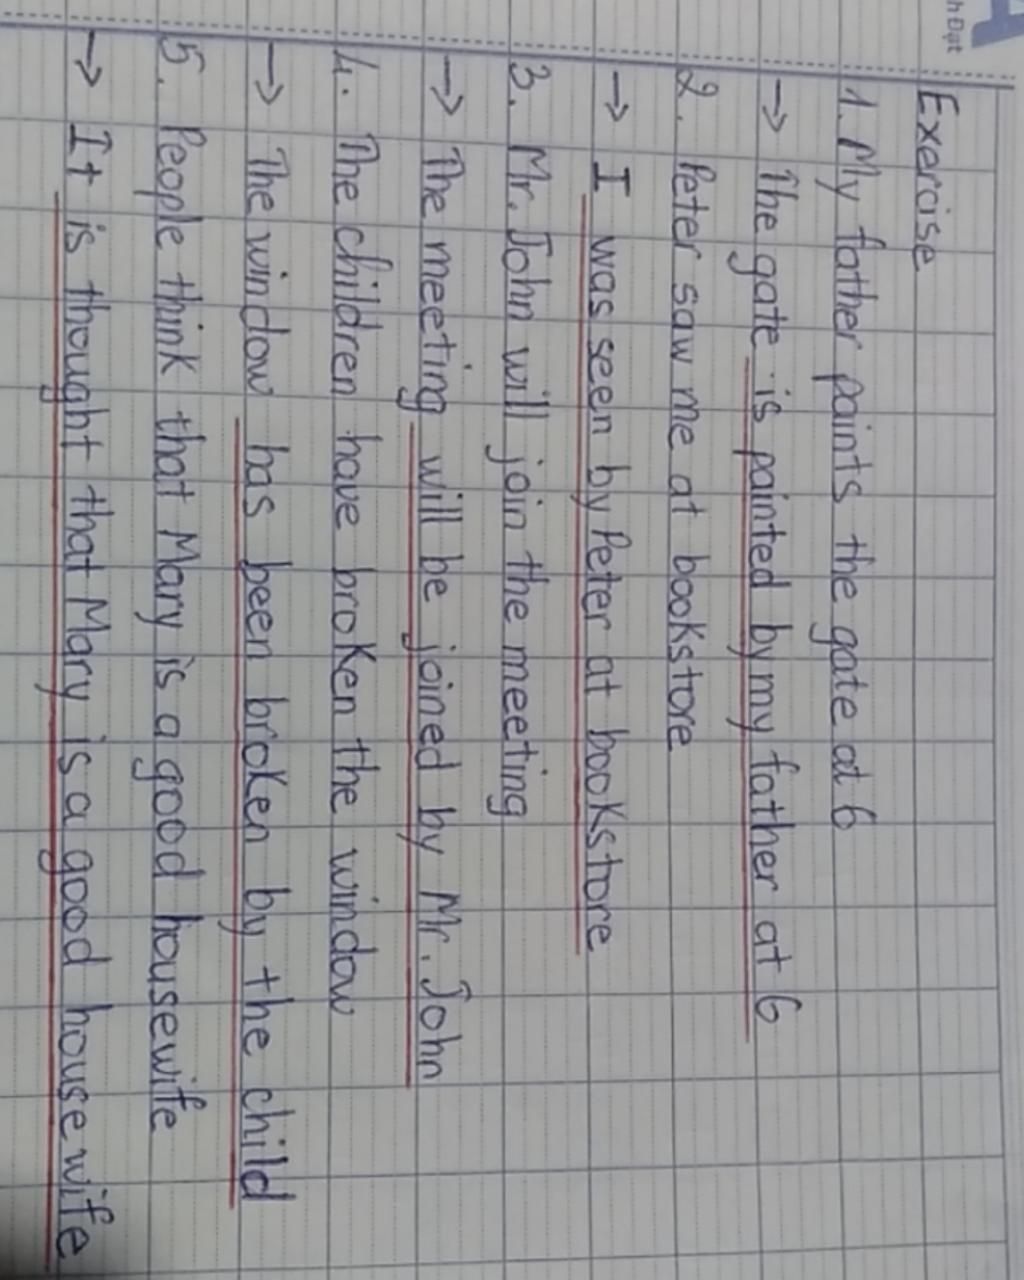 h Đạt
Exercise
1. My father paints the gate at 6
→ The gate is painted by my father at 6
2. Peter saw me at bookstore
→ I was seen by Peter at bookstore
3. Mr. John will join the meeting
→ The meeting will be joined by Mr. John
4. The children have broken the window
→ The window has been broken by the child
5. People think that Mary is a good housewife
→ It is thought that Mary is a good housewife